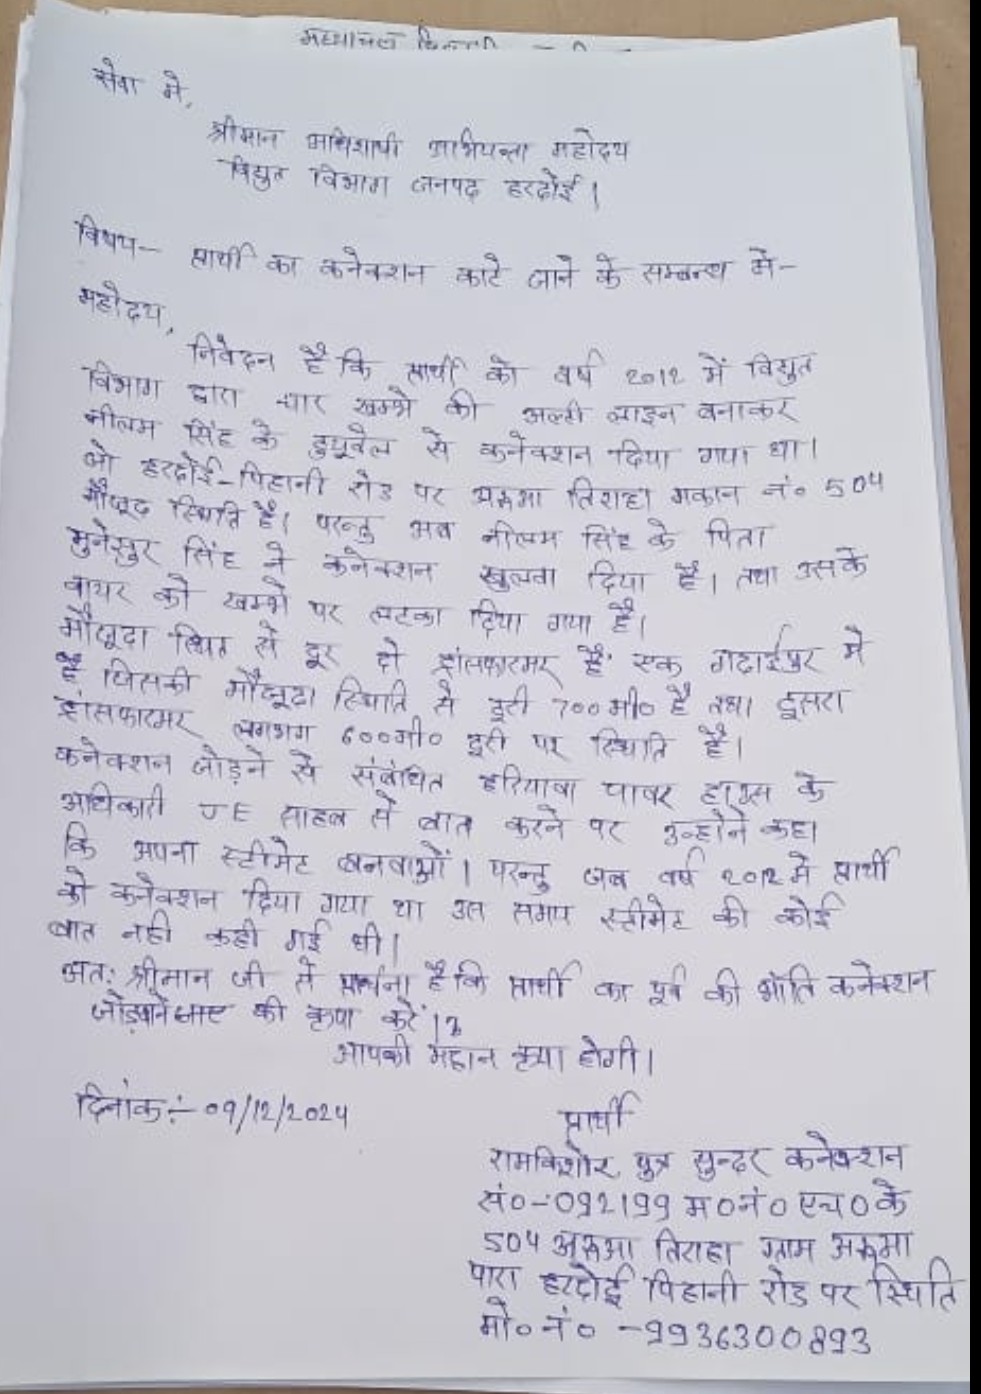 सेवा में,
श्रीमान अधिशाषी अभियन्ता महोदय
विद्युत विभाग जनपद हरदोई।
विषय- प्रार्थी का कनेक्शन काटे जाने के सम्बन्ध में-
महोदय,
निवेदन है कि प्रार्थी को वर्ष 2012 में विद्युत
विभाग द्वारा चार खम्भे की अल्टी लाइन बनाकर
नीलम सिंह के ट्युवैल से कनेक्शन दिया गया था।
जो हरदोई-पिहानी रोड पर अरूआ तिराहा मकान नं० 504
मौजूद स्थिति है। परन्तु अब नीलम सिंह के पिता
मुनेसुर सिंह ने कनेक्शन खुलवा दिया है। तथा उसके
वायर को खम्भे पर लटका दिया गया है।
मौजूदा स्थित से दूर दो ट्रांसफारमर हैं एक गदाईपुर में
है जिसकी मौजूदा स्थिति से दूरी 700मी० है तथा दूसरा
ट्रांसफारमर लगभग 600मी० दूरी पर स्थिति है।
कनेक्शन जोड़ने से संबंधित हरियावा पावर हाउस के
अधिकारी JE साहब से बात करने पर उन्होने कहा
कि अपना स्टीमेट बनवाओं। परन्तु जब वर्ष 2012 मे प्रार्थी
को कनेक्शन दिया गया था उस समय स्टीमेट की कोई
बात नही कही गई थी।
अत: श्रीमान जी से प्रार्थना है कि प्रार्थी का पूर्व की भाँति कनेक्शन
की कृपा करें।
आपकी महान कृपा होगी।
दिनांक:- 09/12/2024
प्रार्थी
रामकिशोर पुत्र सुन्दर कनेक्शन
सं०-092199 म०नं० एच०के
504 अरूआ तिराहा ग्राम अरूआ
पारा हरदोई पिहानी रोड पर स्थिति
मो० नं० -9936300893